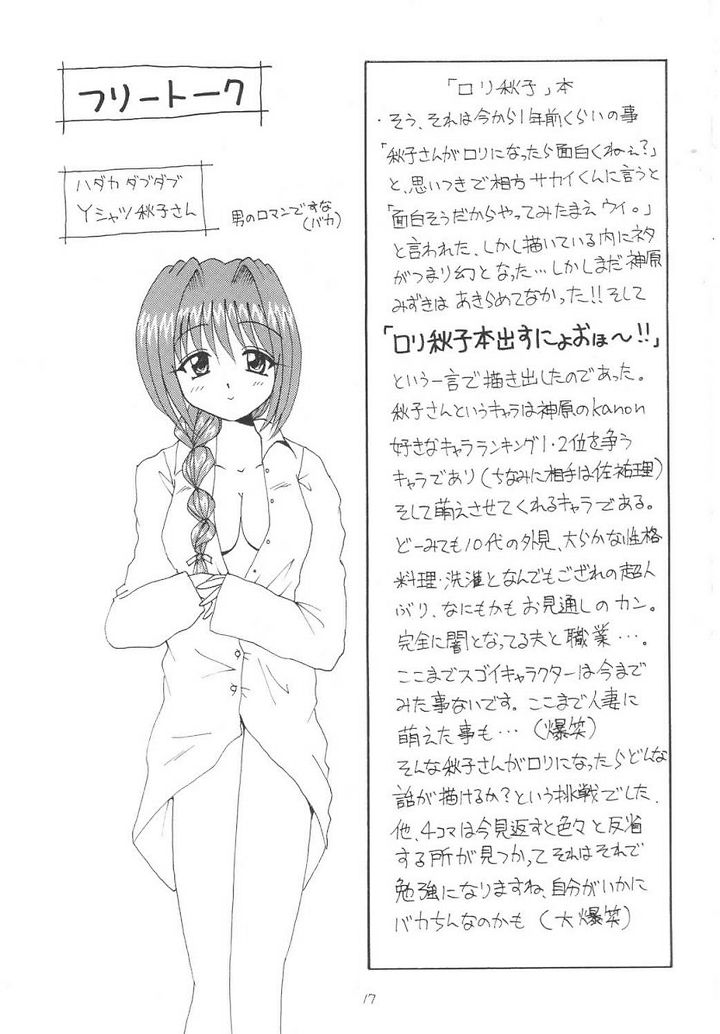 フリートーク
ハダカ ダブダブ
Yシャツ秋子さん
男のロマンですな
(バカ)
「ロリ秋子」本
・そう、それは今から1年前くらいの事
「秋子さんがロリになったら面白くねぇ?」
と、思いつきで相方サカイくんに言うと
「面白そうだからやってみたまえウイ。」
と言われた、しかし描いている内にネタ
がつまり幻となった…しかしまだ神原
みずきは あきらめてなかった!!そして
「ロリ秋子本出すにょおほ〜!!」
という一言で描き出したのであった。
秋子さんというキャラは神原のkanon
好きなキャラランキング1・2位を争う
キャラであり(ちなみに相手は佐祐理)
そして萌えさせてくれるキャラである。
どーみても10代の外見、大らかな性格
料理・洗濯となんでもござれの超人
ぶり、なにもかもお見通しのカン。
完全に闇となってる夫と職業…。
ここまでスゴイキャラクターは今まで
みた事ないです。ここまで人妻に
萌えた事も…(爆笑)
そんな秋子さんがロリになったらどんな
話が描けるか?という挑戦でした.
他、4コマは今見返すと色々と反省
する所が見つかってそれはそれで
勉強になりますね、自分がいかに
バカちんなのかも(大爆笑)
17